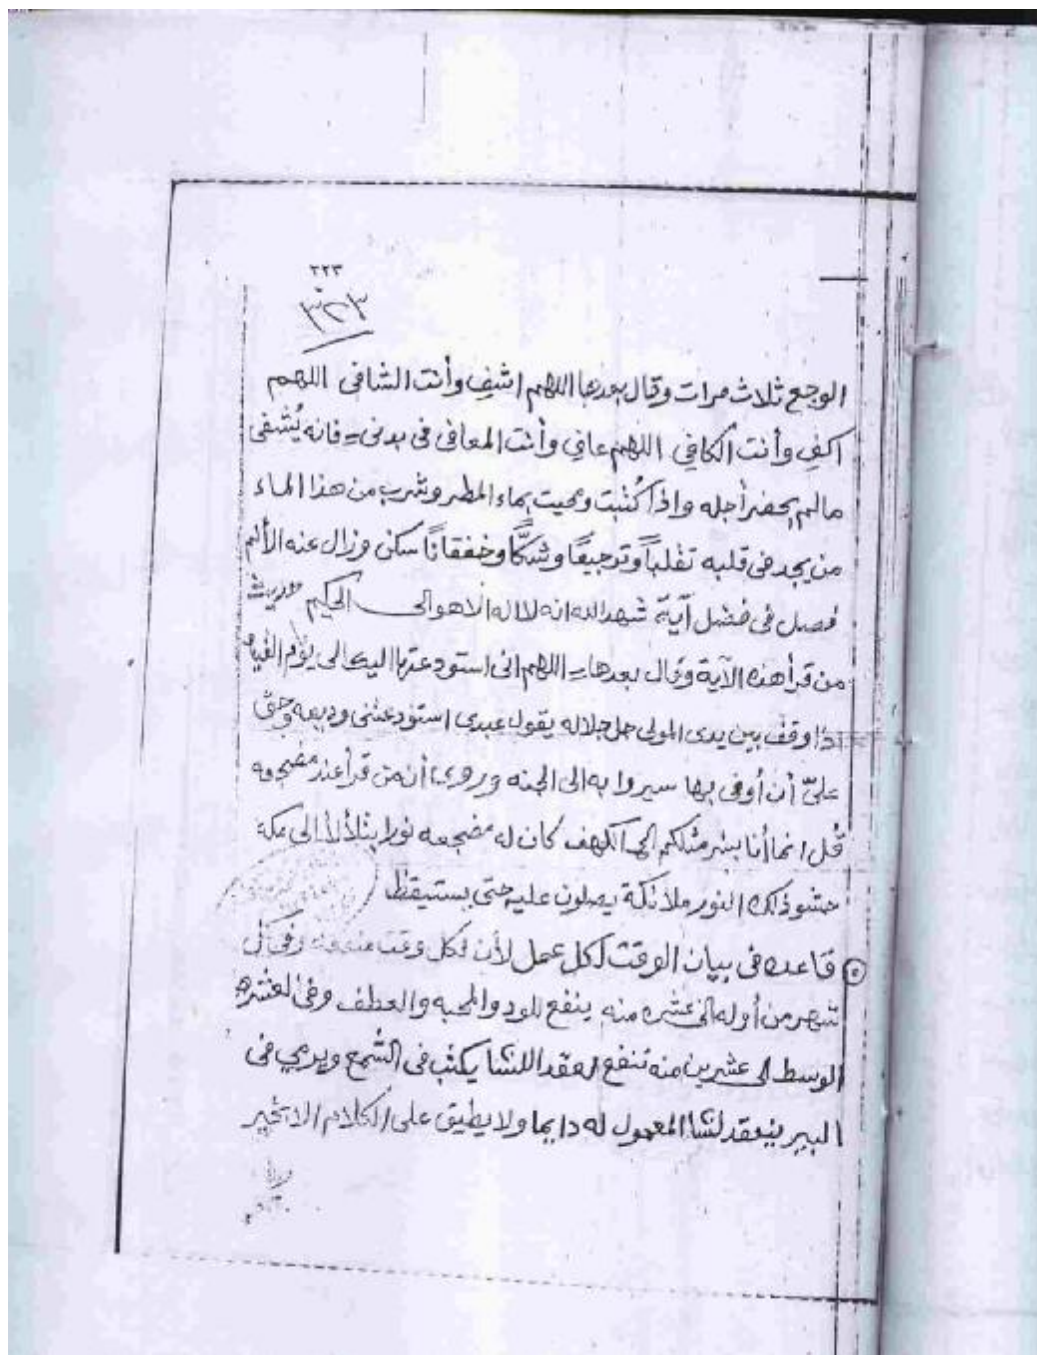 ٢٢٣
٣٢٣
الوجع ثلاث مرات وقال بعدها اللهم اشفِ وأنت الشافى اللهم
اكفِ وأنت الكافِي اللهم عافِي وأنت المعافى فى بدنى = فانه يُشفى
مالم يحضر أجله واذا كُتبت ومحيت بماء المطر وشرب من هذا الماء
من يجد فى قلبه تقلباً وترجيفًا وشكًّا وخفقانًا سكن وزال عنه الألم
فصل فى فضل آية شهد الله انه لا اله الا هو الى الحكيم حديث
من قرأ هذه الآية وقال بعدها = اللهم انى استودعتها اليك الى يوم القيام
اذا وقف بين يدى المولى جل جلاله يقول عبدى استودعتنى وديعه وحق
علىّ أن أوفى بها سيروا به الى الجنه وروى أن من قرأ عند مضجعه
قُل انما أنا بشر مثلكم الى الكهف كان له مضجعه نورا يتلألأ الى مكة
حشو ذلك النور ملائكة يصلون عليه حتى يستيقظ
٥ قاعده فى بيان الوقت لكل عمل لأن لكل وقت منه وفى كل
شهر من أوله الى عشره منه ينفع للود والمحبه والعطف وفى العشره
الوسط الى عشرين منه تنفع لعقد اللشا يكتب فى الشمع ويرمي فى
البير ينعقد لشا المعمول له دايما ولا يطيق على الكلام الا بخير